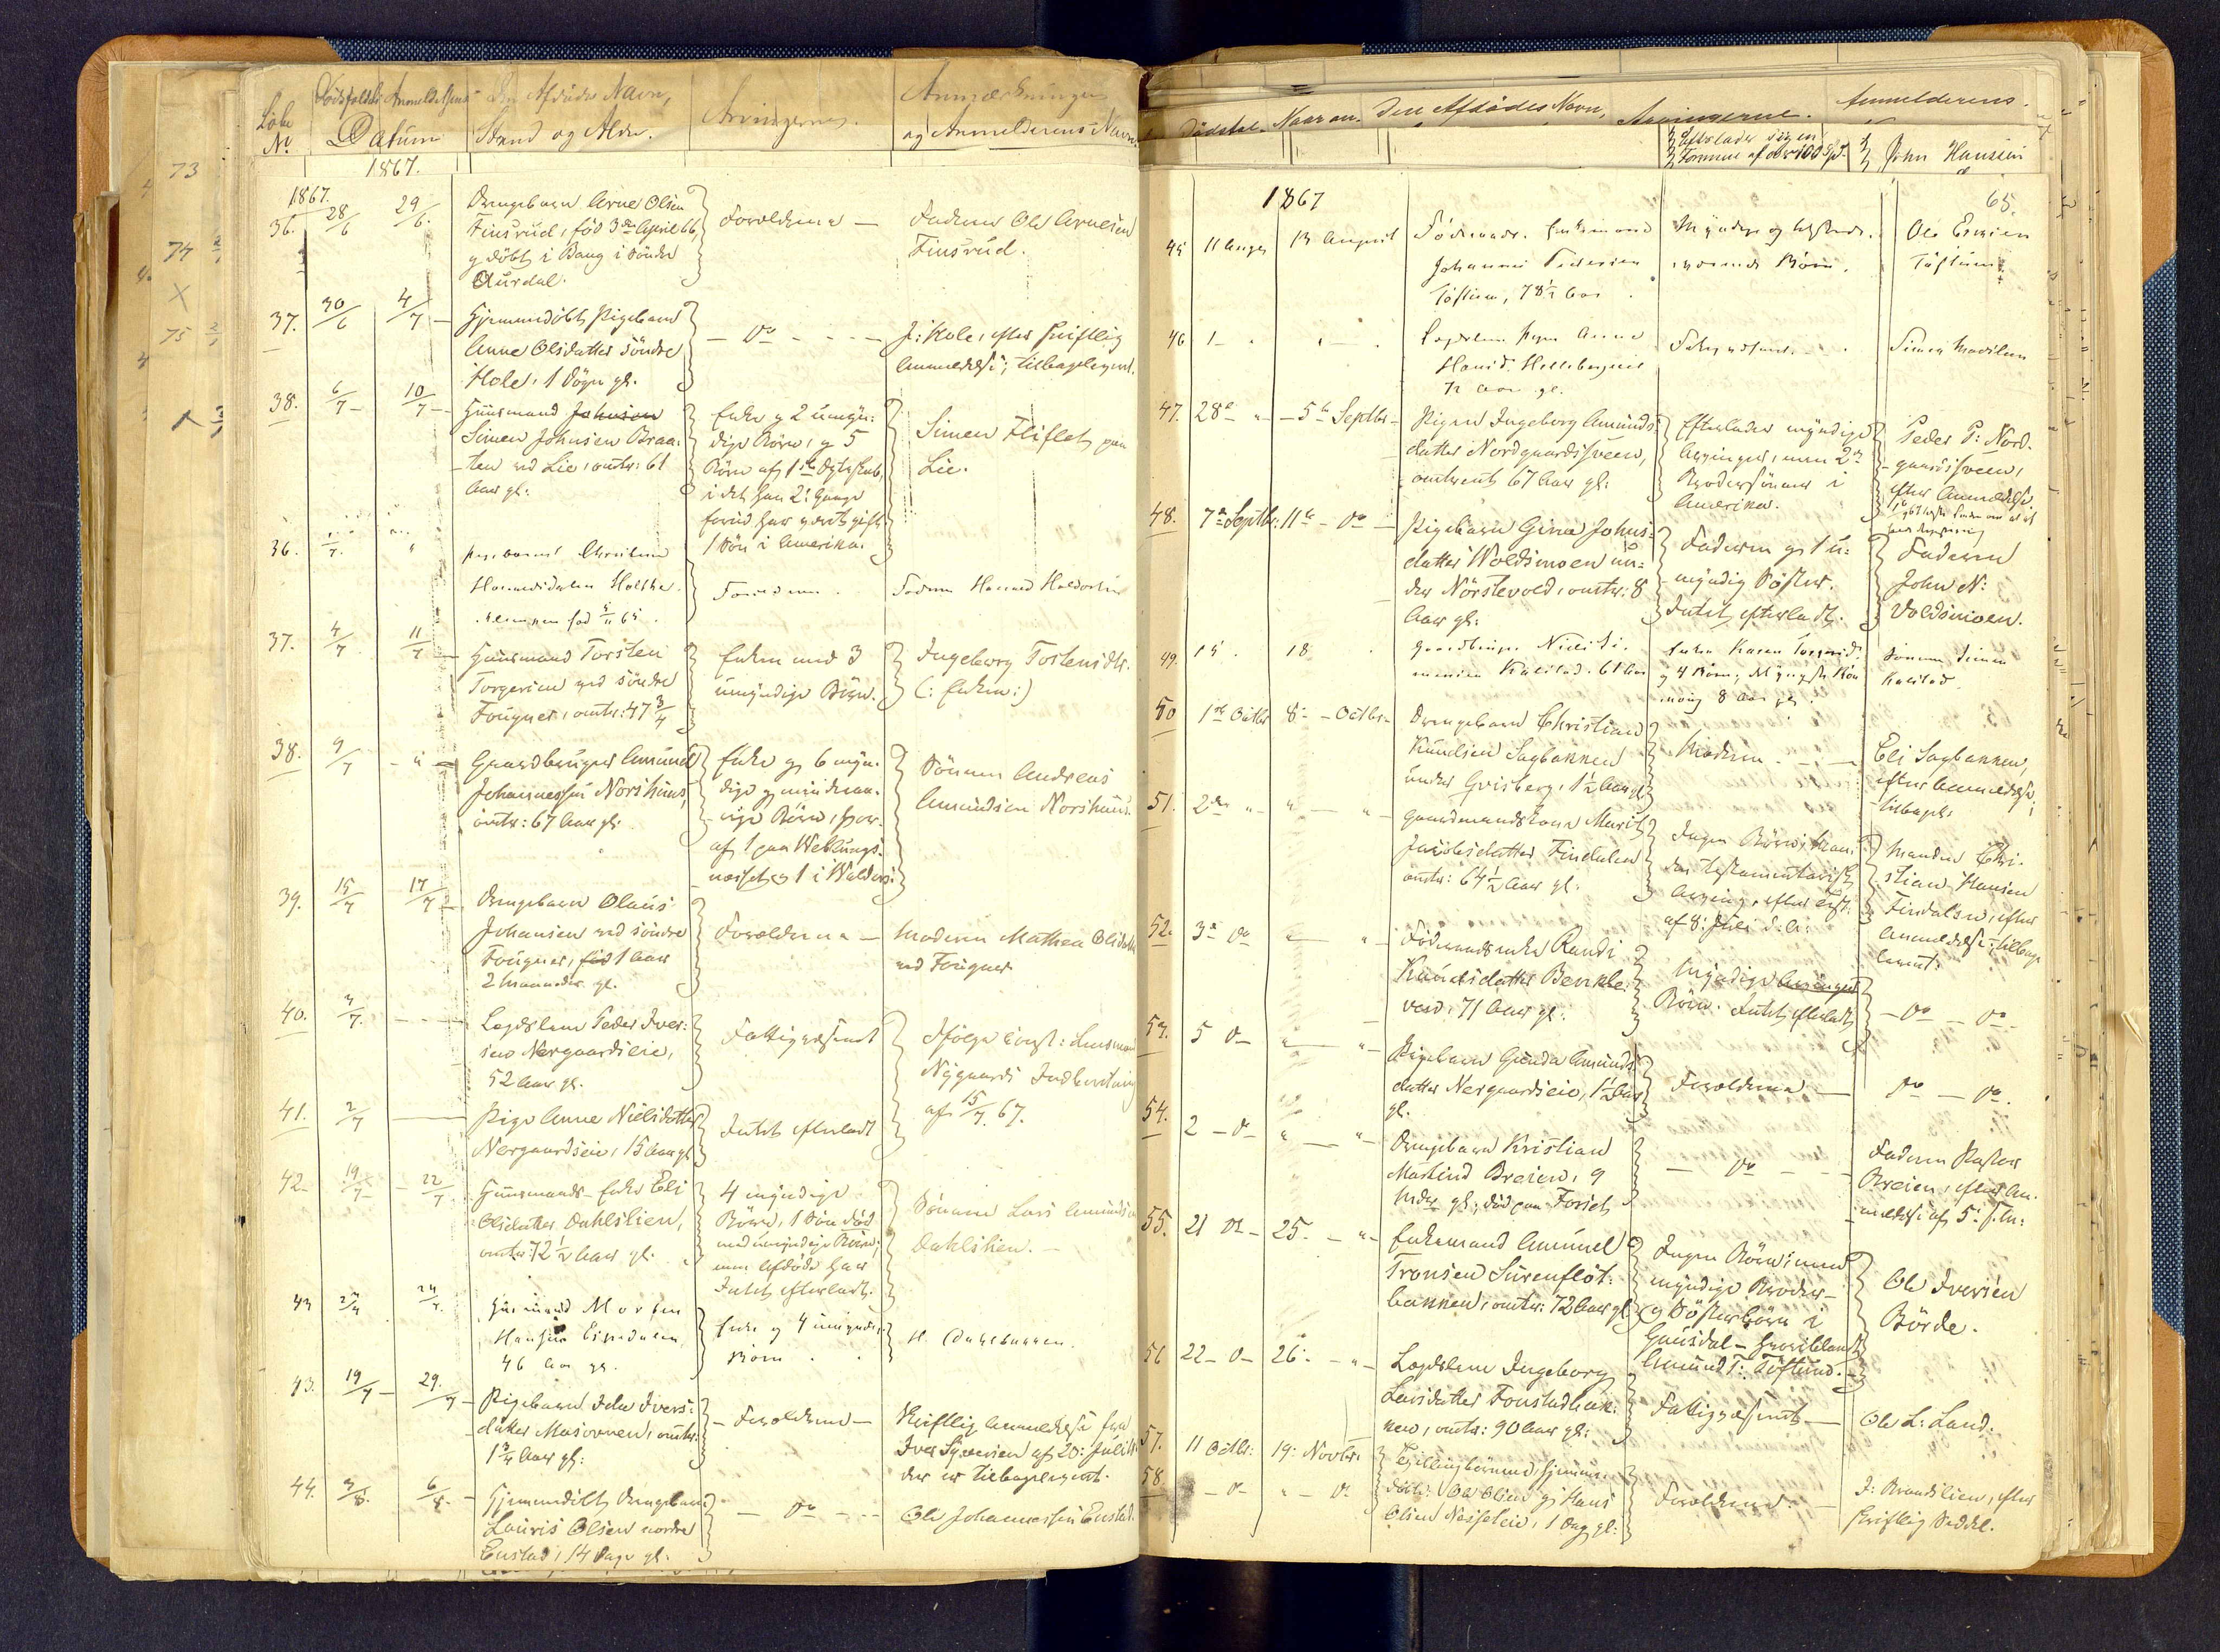 Löbe
No
Dödsfaldets Anmeldelsens
Datum
Den Afdödes Navn,
Stand og Alder.
Arvingerne.
Anmærkninger
og Anmelderens Navn.
1867.
1867.
36. 28/6 29/6.
Drengebarn Arne Olsen
Finsrud, fød 3de April 66,
og döbt i Bang i Söndre
Aurdal.
Forældrene —
Faderen Ole Arnesen
Finsrud.
37. 30/6 4/7 —
Hjemmedöbt Pigebarn
Anne Olsdatter söndre
Hole, 1 Dögn gl.
— Do — - - -
J: Hole, efter skriftlig
Anmeldelse; tilbagelegert.
38. 6/7 — 10/7 —
Huusmand Johnsen
Simen Johnsen Braa-
ten ved Lie, omtr: 61
Aar gl:
Enke og 2 umyn-
dige Börn, og 5
Börn af 1ste Ægteskab,
i det han 2: Gange
forud har været gift.
1 Sön i Amerika.
Simen Fliflet paa
Lie.
36.
Pigebarnet
Faderen
37. 4/7 11/7 —
Huusmand Torsten
Torgersen ved söndre
Fougner, omtr: 47 3/4
Enken med 3
umyndige Börn.
Ingeborg Torstensdtr.
(: Enken :)
38. 9/7 - " -
Gaardbruger Amund
Johannessen Norshuus,
omtr: 67 Aar gl:
Enke og 6 myn-
dige og mindreaa-
rige Börn, hvor-
af 1 paa Veblungs-
næsset og 1 i Valders.
Sönnen Andreas
Amundsen Norshuus.
39. 15/7 17/7 —
Drengebarn Olaus
Johansen ved söndre
Fougner, fød 1 Aar
2 Maaneder gl.
Forældrene —
Moderen Mathea Olsdatter
ved Fougner
40. 7/7. - - -
Lægdslem Peder Iver-
sen Nergaardseie,
52 Aar gl.
Fattigvæsenet
Ifölge const: Lensmand
Nygaards Indberetning
af 15/7 67.
41. 2/7 —
Pige Anne Nielsdatter
Nergaardseie, 15 Aar gl
Intet efterladt
42. 19/7 - 22/7
Huusmands-Enke Eli
Olsdatter Dahlslien,
omtr: 72 1/2 Aar gl.
4 myndige
Börn, 1 Sön död
med umyndige Börn;
men Afdöde har
Intet efterladt.
Sönnen Lars Amundsen
Dahlslien. —
43
Huusmand Morten
Hansen
46 Aar gl.
Enke og 4 umyndige
Börn
43. 19/7 — 29/7 —
Pigebarn Idea Ivers-
datter Masovnen, omtr:
1 3/4 Aar gl:
— Forældrene —
Skriftlig Anmeldelse fra
Iver Syversen af 20: Juli
der er tilbagelegert.
44. 3/8. 6/8. -
Hjemmedöbt Drengebarn
Lauris Olsen nordre
Enstad, 14 Dage gl.
— Do — - -
Ole Johannessen Enstad.
Dödsfal. Naar an. Den Afdödes Navn, Arvingerne. Anmelderens.
Efterlader sig en
Formue af over 100 Spd.
John Hansen
1867
65.
45 11 August 13 August
Föderaads. Enkemand
Johannes Pedersen
Töftum, 78 1/2 Aar.
Myndige og tilstede-
værende Börn.
Ole Evensen
Töftum.
46 1
Lægdslem Pigen Anne
72 Aar gl.
Fattigvæsenet.
Simen
47. 28de " — 5te Septbr —
Pigen Ingeborg Amunds-
datter Nordgaardssveen,
omtrent 67 Aar gl:
Efterlader myndige
Arvinger, men 2de
Brodersönner i
Amerika.
Peder P: Nord-
gaardssveen,
efter Anmeldelse
48. 7de Septbr. 11te — Do —
Pigebarn Gina Johns-
datter Woldsmoen un-
der Nörstevold, omtr: 8
Aar gl:
Faderen og 1 u-
myndig Söster.
Intet efterladt.
Faderen
John N:
Voldsmoen.
49. 15 18
Gaardbruger Niels Si-
monsen Kalstad. 61 Aar
Enken Karen
og 4 Börn, det yngste Bön
8 Aar gl.
Sönnen Simen
Kalstad
50 1ste Octbr 8: — Octbr. —
Drengebarn Christian
Knudsen Sagbakken
under Grisberg, 1 1/2 Aar gl
Moderen — - —
Eli Sagbakken,
efter Anmeldelse,
tilbagel:
51. 2den " — " — " —
Gaardmandskone Marit
Jacobsdatter Findalen
omtr: 64 1/2 Aar gl.
Ingen Börn; Man-
den testamentarisk
Arving, efter Test:
af 8: Juli d. A:
Manden Chri-
stian Hansen
Findalen, efter
Anmeldelse, tilbage-
legert:
52. 3de Do " — " —
Föderaadsenke Randi
Knudsdatter Benkle-
vold, 71 Aar gl.
Myndige Arvinger
Börn. Intet efterladt
— Do — Do —
53. 5 D — " — " —
Pigebarn Gunda Amunds-
datter Nergaardseie, 1 1/2 Aar
gl.
Forældrene —
Do — Do.
54. 2 — D — " — " —
Drengebarn Kristian
Martind Breien, 9
Mdr. gl, död paa Forset
— Do — - -
Faderen Pastor
Breien, efter An-
meldelse af 5: f. M:
55. 21 D — 25. — " —
Enkemand Amund
Tronsen Surenflöt-
bakken, omtr: 72 Aar gl.
Ingen Börn; men
myndige Broder-
og Sösterbörn i
Gausdal — hvoriblandt
Amund T: Töftum. —
Ole Iversen
Börde.
56 22 — D — 26: — " —
Lægdslem Ingeborg
Larsdatter Fonstadbak-
ken, omtr: 90 Aar gl:
Fattigvæsenet —
Ole L: Land.
57. 11 Octbr: 19: Novbr.
58. — D — " — D
Tvillingbörnene, hjemme-
döbte: Ole Olsen og Hans
Olsen Næsseteie, 1 Dag gl:
Forældrene. —
J: Brandslien, efter
skriftlig Seddel.